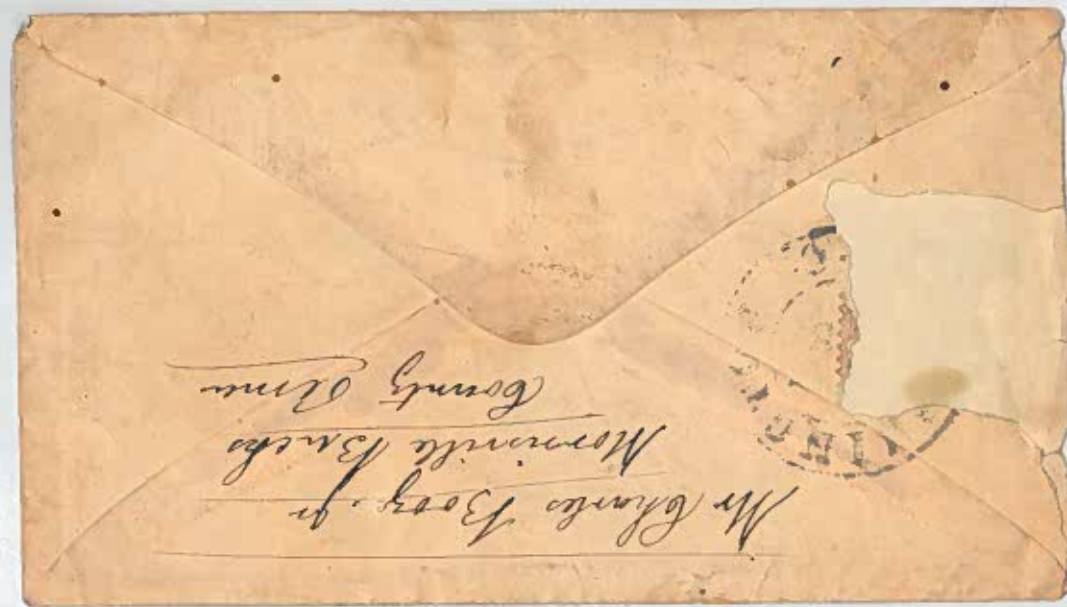 Mr Charles Booz. Jr
Morrisville Bucks
County Penna